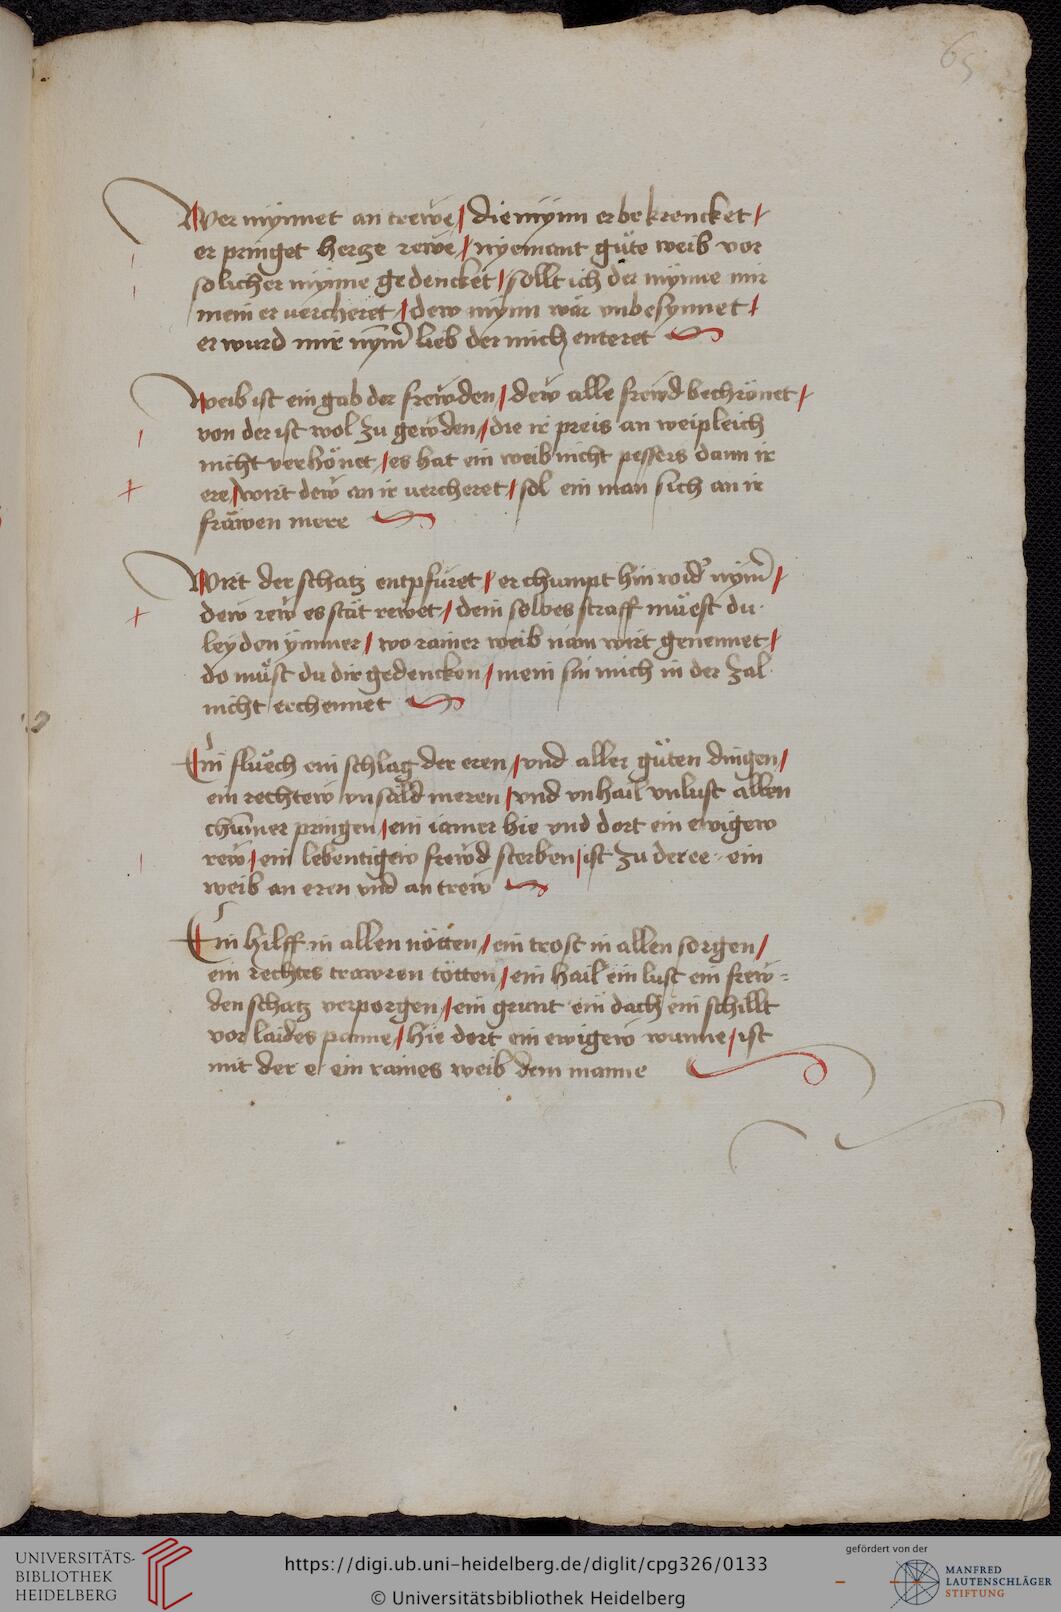 65
Wer mÿnnet an trewe / die mÿnn er bekrencket /
er pringet hertze rewe / nyemant gůte weib vor
solicher mÿnne gedencket / sollt ich der mÿnne mir
mein er vercheret / dew mÿnn wär vnbesynnet /
er wurd mir nÿm̅ lieb der mich enteret
Weib ist ein gab der frewden / dew alle frewd bechrönet /
von der ist wol zu gewden / die ir preis an weipleich
nicht verhönet / es hat ein weib nicht pessers dann ir
ere / wirt dew an ir vercheret / sol ein man sich an ir
fräwen mere
Wirt der schatz entpfüret / er chumpt hin wider nÿm̅ /
dew rew es stät rewet / dein selbes straff müest du
leyden ÿmmer / wo rainer weib nam wirt genennet /
do müst du dir gedencken / mein sin mich in der zal
nicht erchennet
Ein flüech ein schlag der eren / vnd aller güten dingen /
ein rechtew vnsäld meren / vnd vnhail vnlust allen
chumer pringen / ein iamer hie vnd dort ein ewigew
rew / ein lebentigew frewd sterben / ist zu der ee ein
weib an eren vnd an trew
Ein hilff in allen nötten / ein trost in allen sorgen /
ein rechtes trawren tötten / ein hail ein lust ein frew=
den schatz verporgen / ein grunt ein dach ein schillt
vor laides panne / hie dort ein ewigew wunne / ist
mit der e ein raines weib dem manne
UNIVERSITÄTS-
BIBLIOTHEK
HEIDELBERG
https://digi.ub.uni-heidelberg.de/diglit/cpg326/0133
© Universitätsbibliothek Heidelberg
gefördert von der
MANFRED
LAUTENSCHLÄGER
STIFTUNG